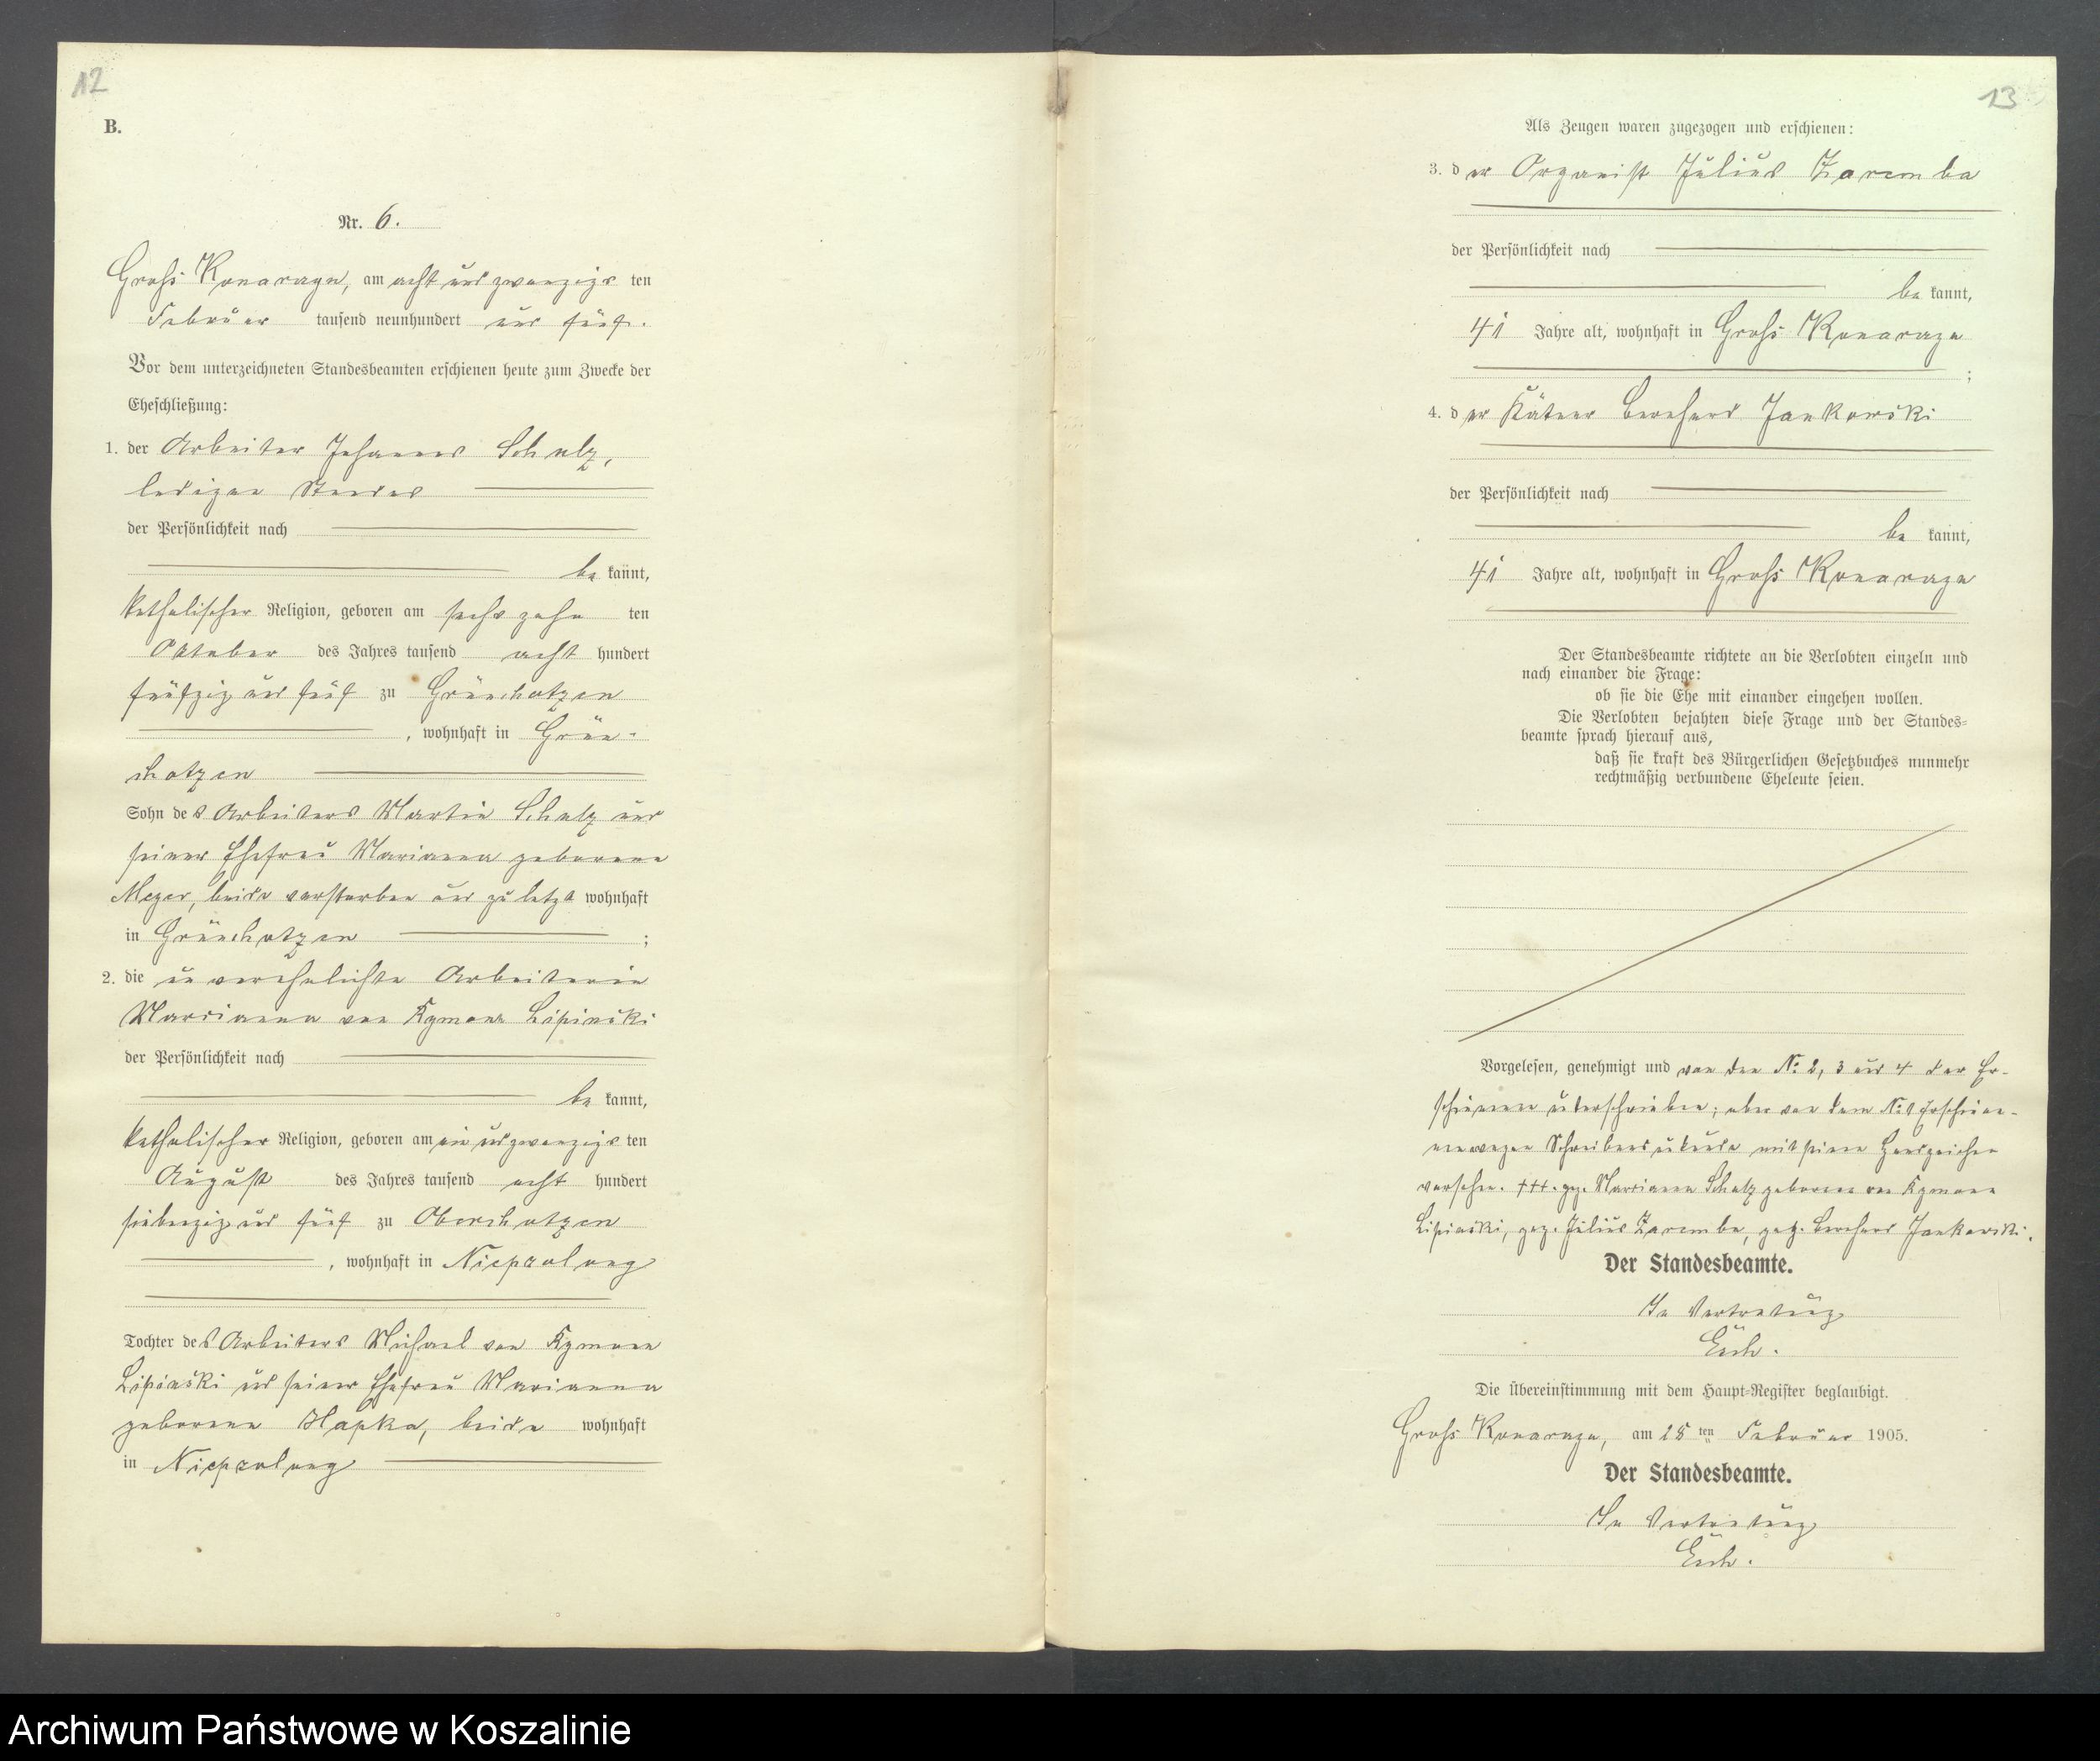 12
B.
Nr. 6.
Groß Konarazyn, am acht und zwanzigs ten
Februar tausend neunhundert und fünf.
Vor dem unterzeichneten Standesbeamten erschienen heute zum Zwecke der
Eheschließung:
1. der Arbeiter Johannes Schulz,
ledigen Standes
der Persönlichkeit nach
be kannt,
katholischer Religion, geboren am sechszehn ten
Oktober des Jahres tausend acht hundert
fünfzig und fünf zu Grünchotzen
, wohnhaft in Grün-
chotzen
Sohn des Arbeiters Martin Schulz und
seiner Ehefrau Marianna geborene
Meger, beide verstorben und zuletzt wohnhaft
in Grünchotzen ;
2. die unverehelichte Arbeiterin
Marianna von Kzmann Lipinski
der Persönlichkeit nach
be kannt,
katholischer Religion, geboren am ein und zwanzigs ten
August des Jahres tausend acht hundert
siebenzig und fünf zu Oberchotzen
, wohnhaft in Niepzolong
Tochter des Arbeiters Michael von Kzmann
Lipinski und seiner Ehefrau Marianna
geborene Hapka, beide wohnhaft
in Niepzolong
13
Als Zeugen waren zugezogen und erschienen:
3. der Organist Julius Zaremba
der Persönlichkeit nach
be kannt,
41 Jahre alt, wohnhaft in Groß Konarzyn
;
4. der Kätner Bernhard Jankowski
der Persönlichkeit nach
be kannt,
41 Jahre alt, wohnhaft in Groß Konarzyn
Der Standesbeamte richtete an die Verlobten einzeln und
nach einander die Frage:
ob sie die Ehe mit einander eingehen wollen.
Die Verlobten bejahten diese Frage und der Standes-
beamte sprach hierauf aus,
daß sie kraft des Bürgerlichen Gesetzbuches nunmehr
rechtmäßig verbundene Eheleute seien.
Vorgelesen, genehmigt und von den No. 2, 3 und 4 der Er-
schienenen unterschrieben; aber von dem No. 1 Erschiene-
nen wegen Schreibensunkunde mit seinem Handzeichen
versehen. +++. gez. Marianna Schulz geborene von Kzmann
Lipinski, gez. Julius Zaremba, gez. Bernhard Jankowski.
Der Standesbeamte.
In Vertretung
Esch.
Die Übereinstimmung mit dem Haupt-Register beglaubigt.
Groß Konarzyn, am 28 ten Februar 1905.
Der Standesbeamte.
In Vertretung
Esch.
Archiwum Państwowe w Koszalinie